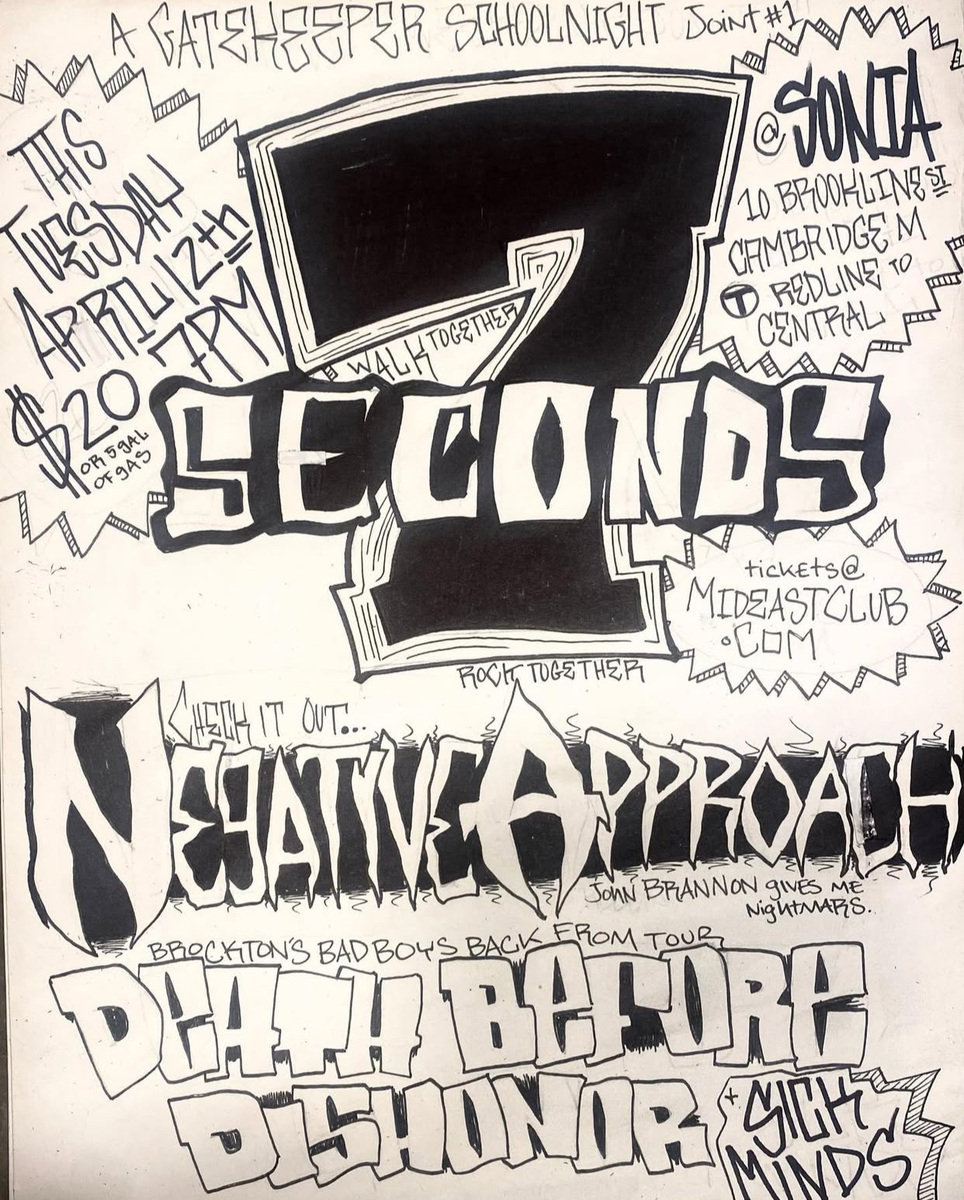 A GATEKEEPER SCHOOLNIGHT Joint #1
THIS
TUESDAY
APRIL 12th
7PM
$20
OR 5 GAL
OF GAS
@ SONIA
10 BROOKLINE ST
CAMBRIDGE M
T REDLINE TO
CENTRAL
7
WALK TOGETHER
SECONDS
tickets@
MIDEASTCLUB
.COM
ROCK TOGETHER
CHECK IT OUT...
NEGATIVE APPROACH
JOHN BRANNON GIVES ME
NIGHTMARS.
BROCKTON'S BAD BOYS BACK FROM TOUR
DEATH BEFORE
DISHONOR
+ SICK
MINDS